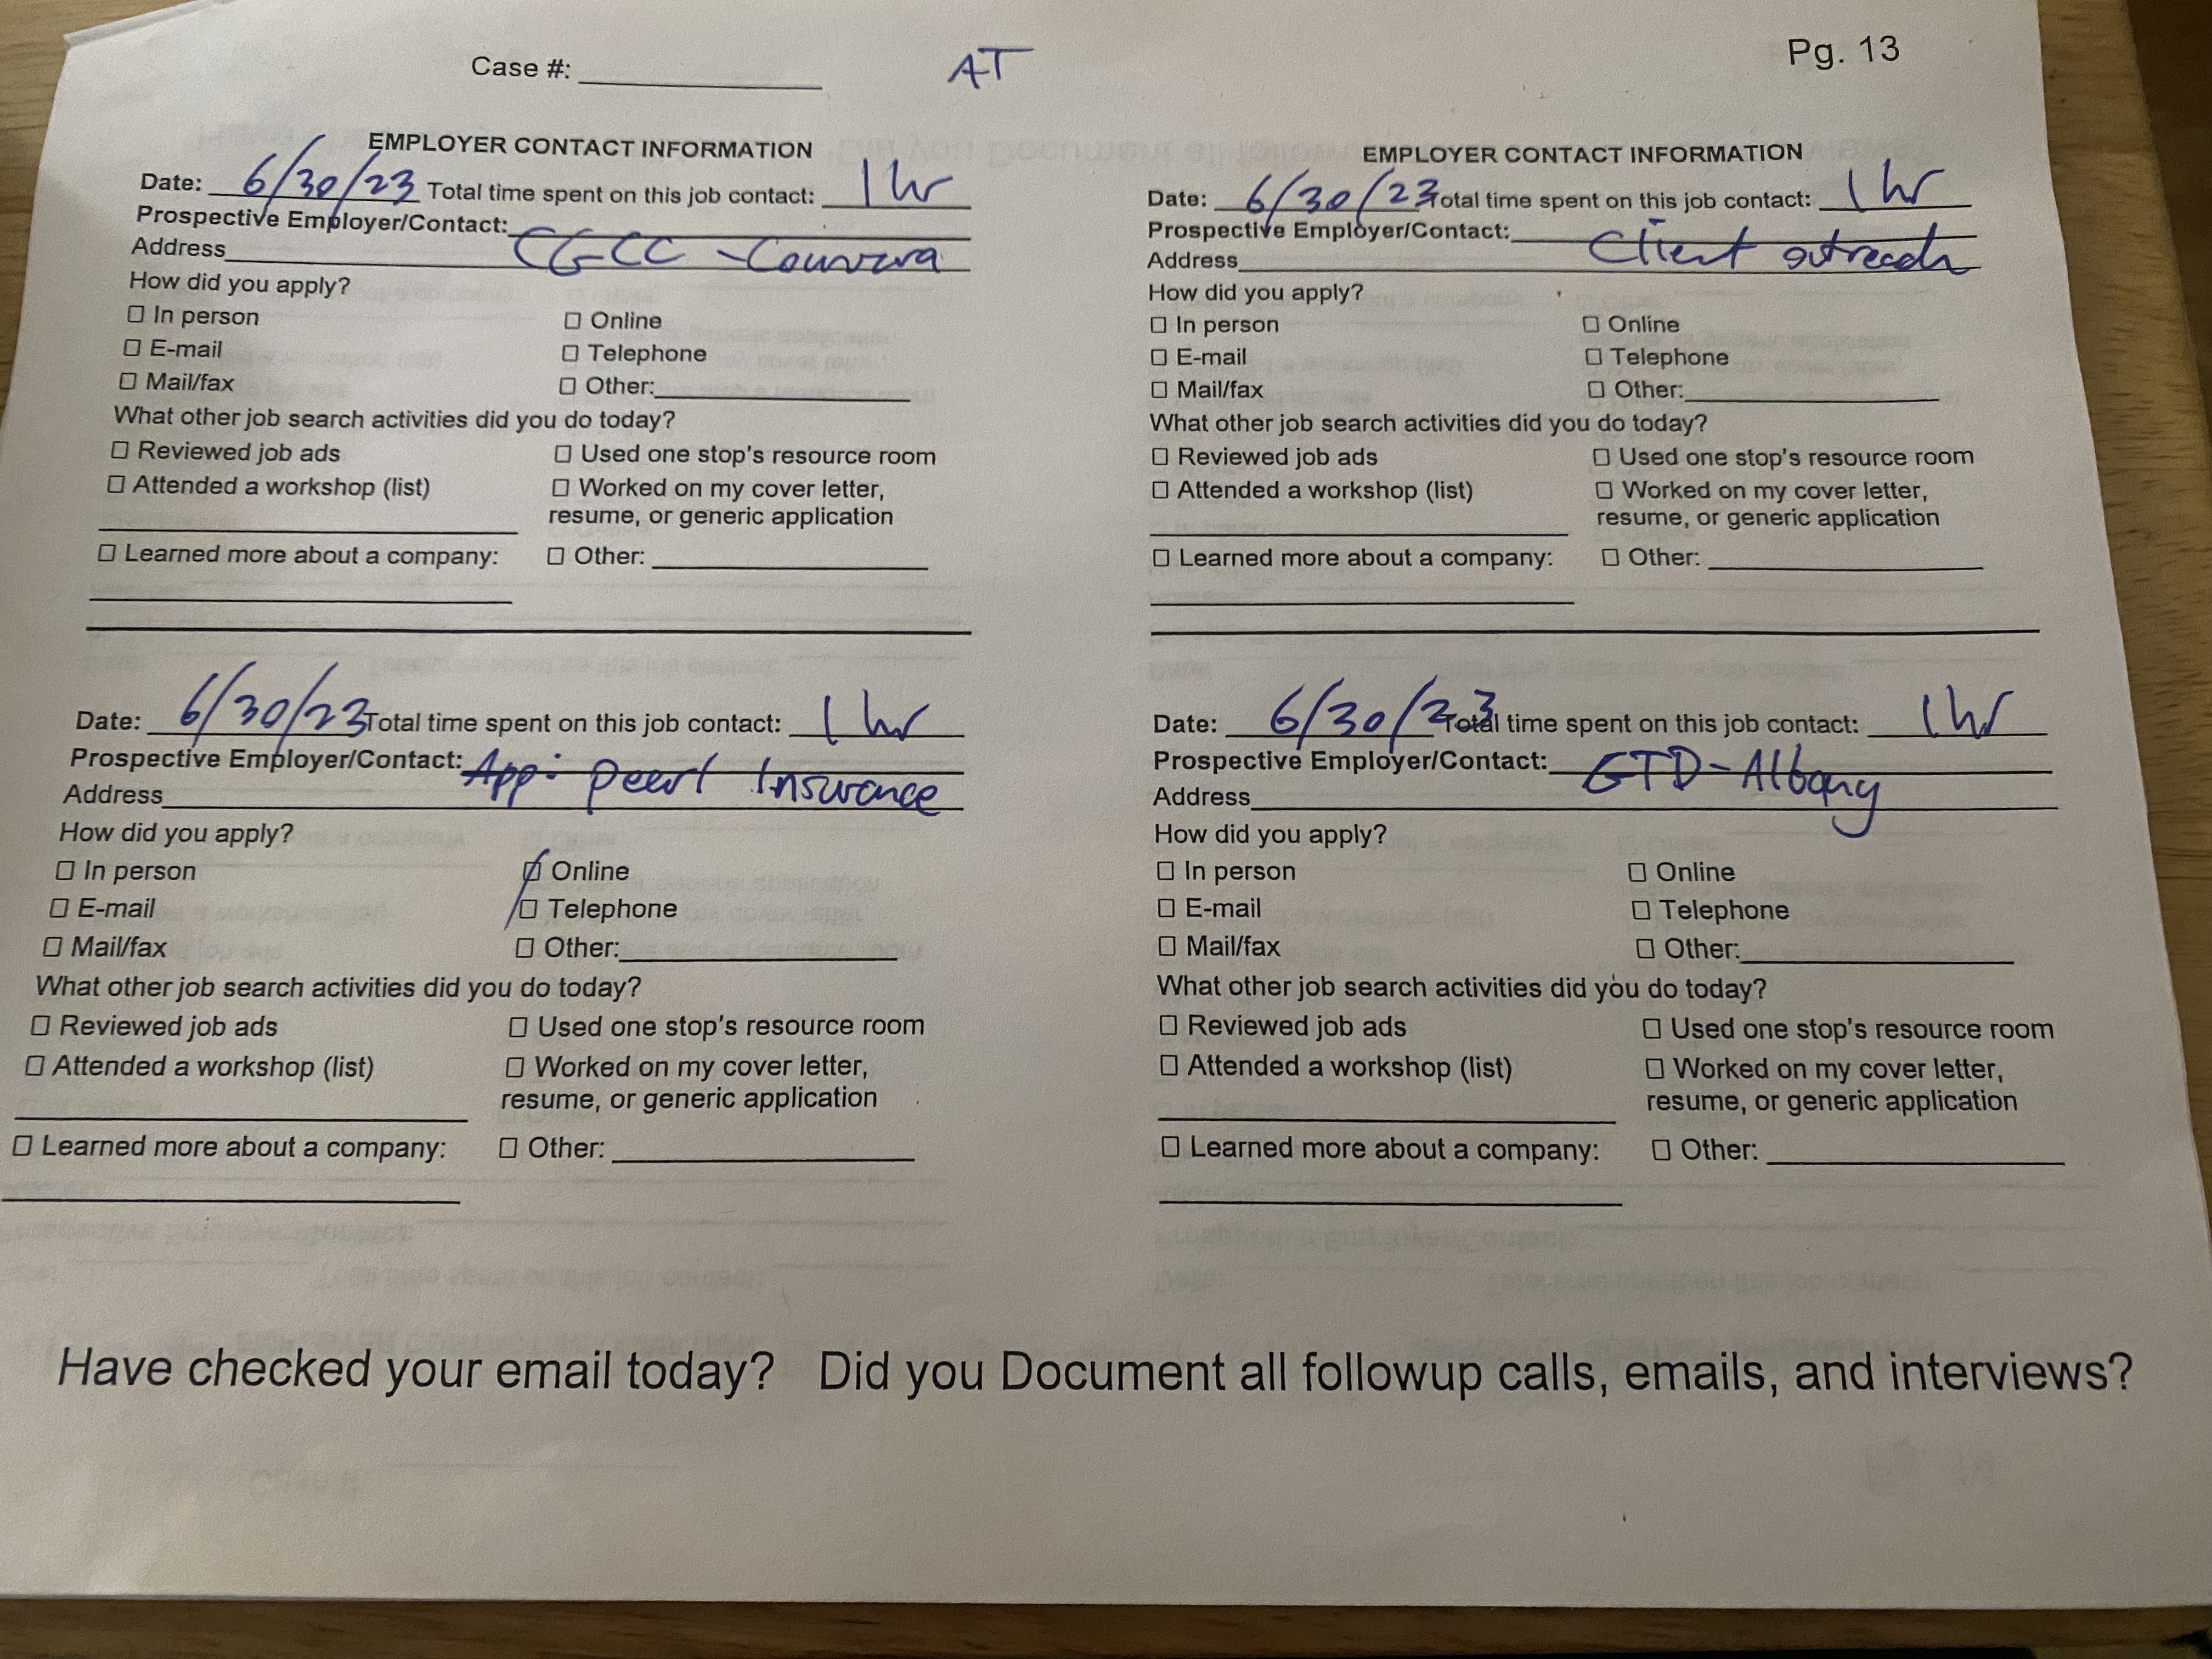 Case #: AT Pg. 13
EMPLOYER CONTACT INFORMATION
Date: 6/30/23 Total time spent on this job contact: 1 hr
Prospective Employer/Contact:
Address CGCC -
How did you apply?
☐ In person ☐ Online
☐ E-mail ☐ Telephone
☐ Mail/fax ☐ Other:
What other job search activities did you do today?
☐ Reviewed job ads ☐ Used one stop's resource room
☐ Attended a workshop (list) ☐ Worked on my cover letter,
resume, or generic application
☐ Learned more about a company: ☐ Other:
EMPLOYER CONTACT INFORMATION
Date: 6/30/23 Total time spent on this job contact: 1 hr
Prospective Employer/Contact:
Address Client outreach
How did you apply?
☐ In person ☐ Online
☐ E-mail ☐ Telephone
☐ Mail/fax ☐ Other:
What other job search activities did you do today?
☐ Reviewed job ads ☐ Used one stop's resource room
☐ Attended a workshop (list) ☐ Worked on my cover letter,
resume, or generic application
☐ Learned more about a company: ☐ Other:
Date: 6/30/23 Total time spent on this job contact: 1 hr
Prospective Employer/Contact: App: pearl Insurance
Address
How did you apply?
☐ In person ☑ Online
☐ E-mail ☐ Telephone
☐ Mail/fax ☐ Other:
What other job search activities did you do today?
☐ Reviewed job ads ☐ Used one stop's resource room
☐ Attended a workshop (list) ☐ Worked on my cover letter,
resume, or generic application
☐ Learned more about a company: ☐ Other:
Date: 6/30/23 Total time spent on this job contact: 1 hr
Prospective Employer/Contact: GTD-Albany
Address
How did you apply?
☐ In person ☐ Online
☐ E-mail ☐ Telephone
☐ Mail/fax ☐ Other:
What other job search activities did you do today?
☐ Reviewed job ads ☐ Used one stop's resource room
☐ Attended a workshop (list) ☐ Worked on my cover letter,
resume, or generic application
☐ Learned more about a company: ☐ Other:
Have checked your email today? Did you Document all followup calls, emails, and interviews?